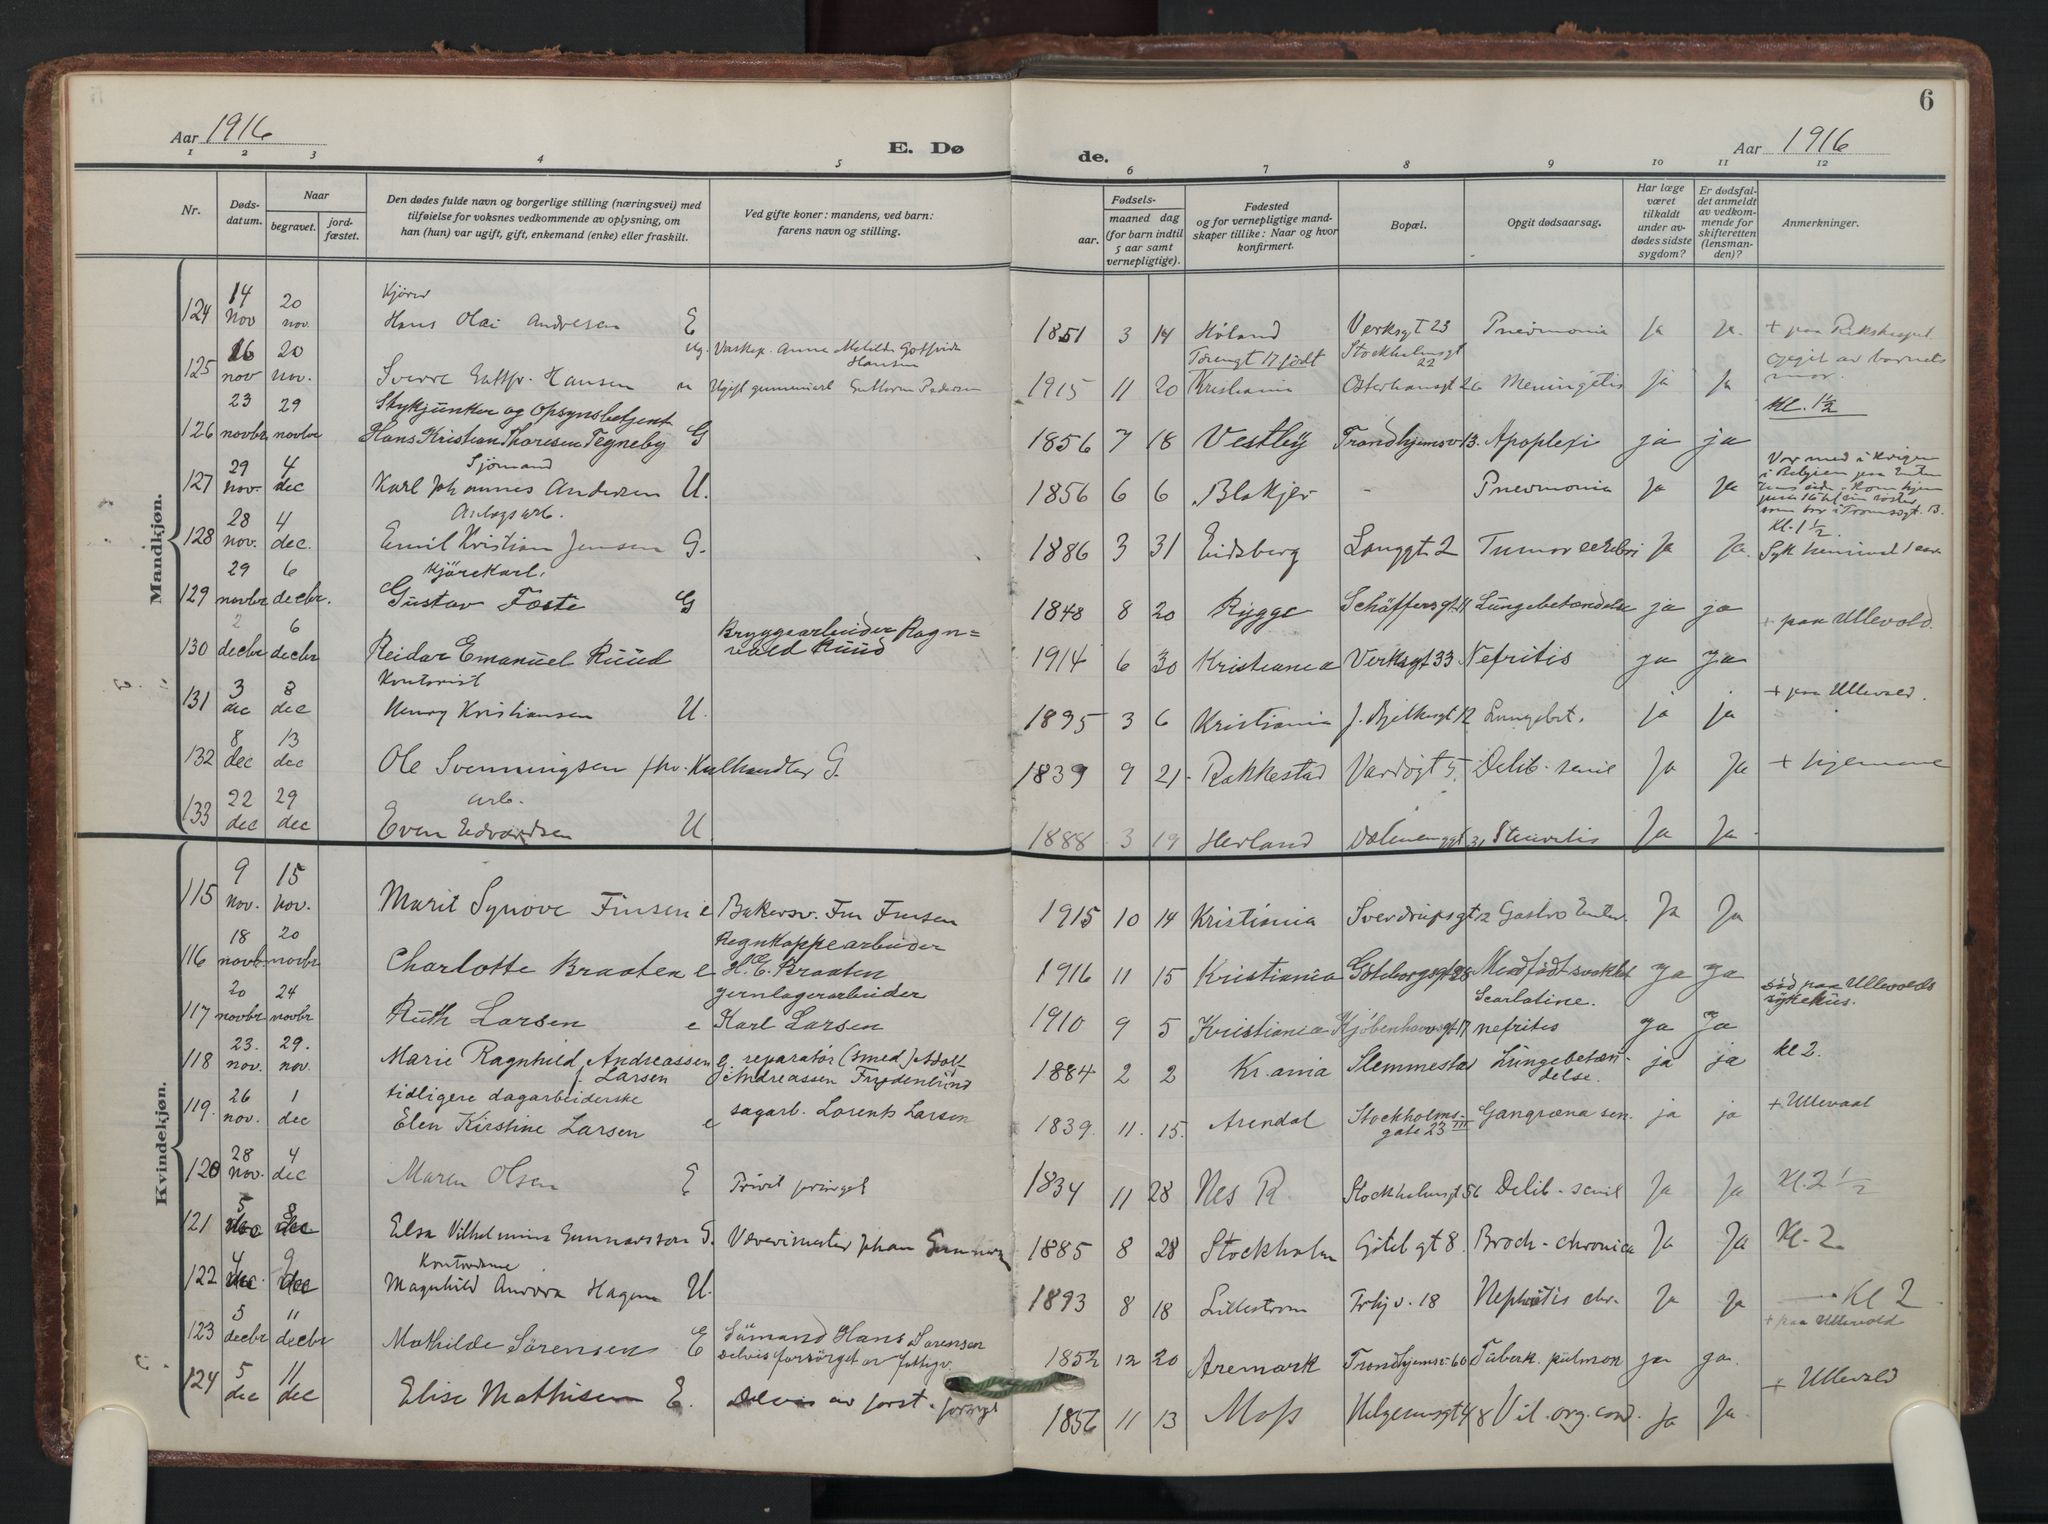 6
Aar 1916
E. Dø
de.
Aar 1916
1 2 3 4 5 6 7 8 9 10 11 12
Nr.
Døds-
datum.
Naar
begravet.
jord-
fæstet.
Den dødes fulde navn og borgerlige stilling (næringsvei) med
tilføielse for voksnes vedkommende av oplysning, om
han (hun) var ugift, gift, enkemand (enke) eller fraskilt.
Ved gifte koner: mandens, ved barn:
farens navn og stilling.
Fødsels-
aar.
maaned dag
(for barn indtil
5 aar samt
vernepligtige).
Fødested
og for vernepligtige mand-
skaper tillike: Naar og hvor
konfirmert.
Bopæl.
Opgit dødsaarsag.
Har læge
været
tilkaldt
under av-
dødes sidste
sygdom?
Er dødsfal-
det anmeldt
av vedkom-
mende for
skifteretten
(lensman-
den)?
Anmerkninger.
Mandkjøn.
124 14 nov 20 nov. Kjører
Hans Olai Andresen E 1851 3 14 Høland Verksgt 23 Pneumonia Ja Ja.
125 16 nov 20 nov. Sverre Hansen u 1915 11 20 Kristiania Meningitis Ja Ja
opgit av barnets
mor.
126 23 novbr 29 novbr Stykjunker og Opsynsbetjent
Hans Kristian Thoresen Tegneby G 1856 7 18 Vestby Trondhjemsv 13. Apoplexi ja ja kl. 1½
127 29 nov. 4 dec Sjømand
Karl Johannes Andersen U. 1856 6 6 Blakjer - Pneumonia Ja Ja
128 28 nov. 4 dec. Anlægsarb.
Emil Kristian Jensen G. 1886 3 31 Eidsberg Langgt 2 Tumor cerebri Ja Ja. Kl. 1½
129 29 novbr 6 decbr. Kjørekarl.
Gustav Foste G 1848 8 20 Rygge Schäffersgt 11 Lungebetændelse ja ja + paa Ullevold.
130 2 decbr 6 decbr Reidar Emanuel Ruud Bryggearbeider Ragn=
vald Ruud 1914 6 30 Kristiania Verksgt 33 Nefritis ja ja
131 3 dec 8 dec Kontorist
Henry Kristiansen U. 1895 3 6 Kristiania J. Bjelkesgt 12 Lungebet. ja ja + paa Ullevold.
132 8 dec 13 dec Ole Svenningsen fhv. Kulhandler G. 1839 9 21 Rakkestad Vardøgt 5. Delib. senil Ja Ja + hjemme
133 22 dec 29 dec arb.
Even Edvardsen U. 1888 3 19 Herland Ja Ja
Kvindekjøn.
115 9 nov. 15 nov. Marit Synøve Finsen e 1915 10 14 Kristiania Sverdrupsgt 12 Gastro Enter. Ja Ja
116 18 novb. 20 novbr Charlotte Braaten e Regnkappearbeider
H. C. Braaten 1916 11 15 Kristiania Göteborgsgt 28 Medfødt svakhet ja ja
117 20 novbr 24 novbr Ruth Larsen e jernlagerarbeider
Karl Larsen 1910 9 5 Kristiania Kjøbenhavnsgt 17 Scarlatine.
nefritis ja ja død paa Ullevolds
sykehus.
118 23. nov. 29. nov. Marie Ragnhild Andreassen
f. Larsen g. reparatør (smed) Adolf
Andreassen Frydenlund 1884 2 2 Kr.ania Slemmestad Lungebetæn-
delse. ja ja kl 2.
119. 26 nov. 1 dec tidligere dagarbeiderske
Elen Kirstine Larsen e sagarb. Lorents Larsen 1839. 11. 15. Arendal Stockholms-
gate 23 III Gangræna sen. ja ja + Ullevaal
120 28 nov. 4 dec Maren Olsen E Privat forsørget 1834 11 28 Nes R. Stockholmsgt 56 Delib. senil Ja Ja Kl. 2 ½
121 5 dec 8 dec Elsa Vilhelmina Gunnarsson G. Vævermester Johan 1885 8 28 Stockholm Götebgt 8. Broch. chronica Ja Ja Kl. 2
122 4 dec. 9 dec Kontordame
Magnhild Aurora Hagen U. 1893 8 18 Lillestrøm Trhjv. 18 Nephritis chr. Ja Ja Kl 2
123 5 decbr 11 decbr Mathilde Sørensen E Sömand Hans Sørensen
delvis forsørget av fattigv. 1852 12 20 Aremark Trondhjemsv 60 Tuberk. pulmon ja ja. + paa Ullevold
124 5 dec 11 dec Elise Mathisen E. Delvis av forst. forsørget 1856 11 13 Moss Helgesensgt 48 Vit. org. cord. Ja Ja + Ullevold